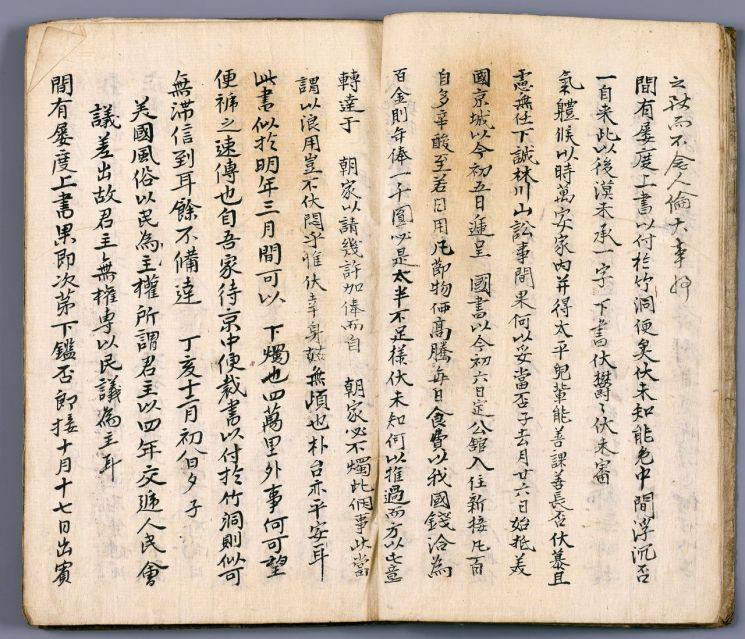 之訣而不念人倫大事好
間有屢度上書以付於竹洞便矣伏未知能免中間浮沉否
一自來此以後漠未承一字下書伏鬱〻伏未審
氣體候以時萬安家內幷得太平兒輩能善課善長否伏慕且
慮無任下誠林川山訟事間果何以妥當否子去月廿六日始抵美
國京城以今初五日遞呈 國書以今初六日定公館入住新接凡百
自多辛酸至若日用凡節物価高騰每日食費以我國錢洽為
百金則年俸一千圓以是太半不足樣伏未知何以推過而方以此意
轉達于 朝家以請幾許加俸而自 朝家必不燭此個事此當
謂以浪用豈不伏悶乎雖伏幸身姑無頉也朴台亦平安耳
此書似於明年三月間可以 下燭也四萬里外事何可望
便褫之速傳也自吾家待京中便裁書以付於竹洞則似可
無滯信到耳餘不備達 丁亥十二月初八日夕 子
美國風俗以民為主權所謂君主以四年交遞人民會
議差出故君主無權專以民議為主耳
間有屢度上書果即次第下鑑否卽接十月十七日出賓